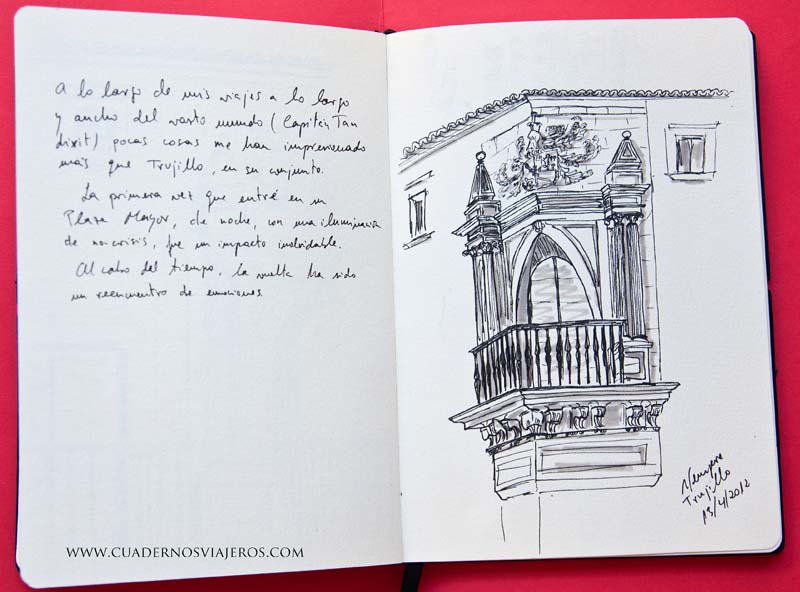 A lo largo de mis viajes a lo largo
y ancho del vasto mundo (Capitán Tan
dixit) pocas cosas me han impresionado
más que Trujillo, en su conjunto.
La primera vez que entré en su
Plaza Mayor, de noche, con una iluminación
de no-crisis, fue un impacto inolvidable.
Al cabo del tiempo, la vuelta ha sido
un reencuentro de emociones.
WWW.CUADERNOSVIAJEROS.COM
Trujillo
13/4/2012